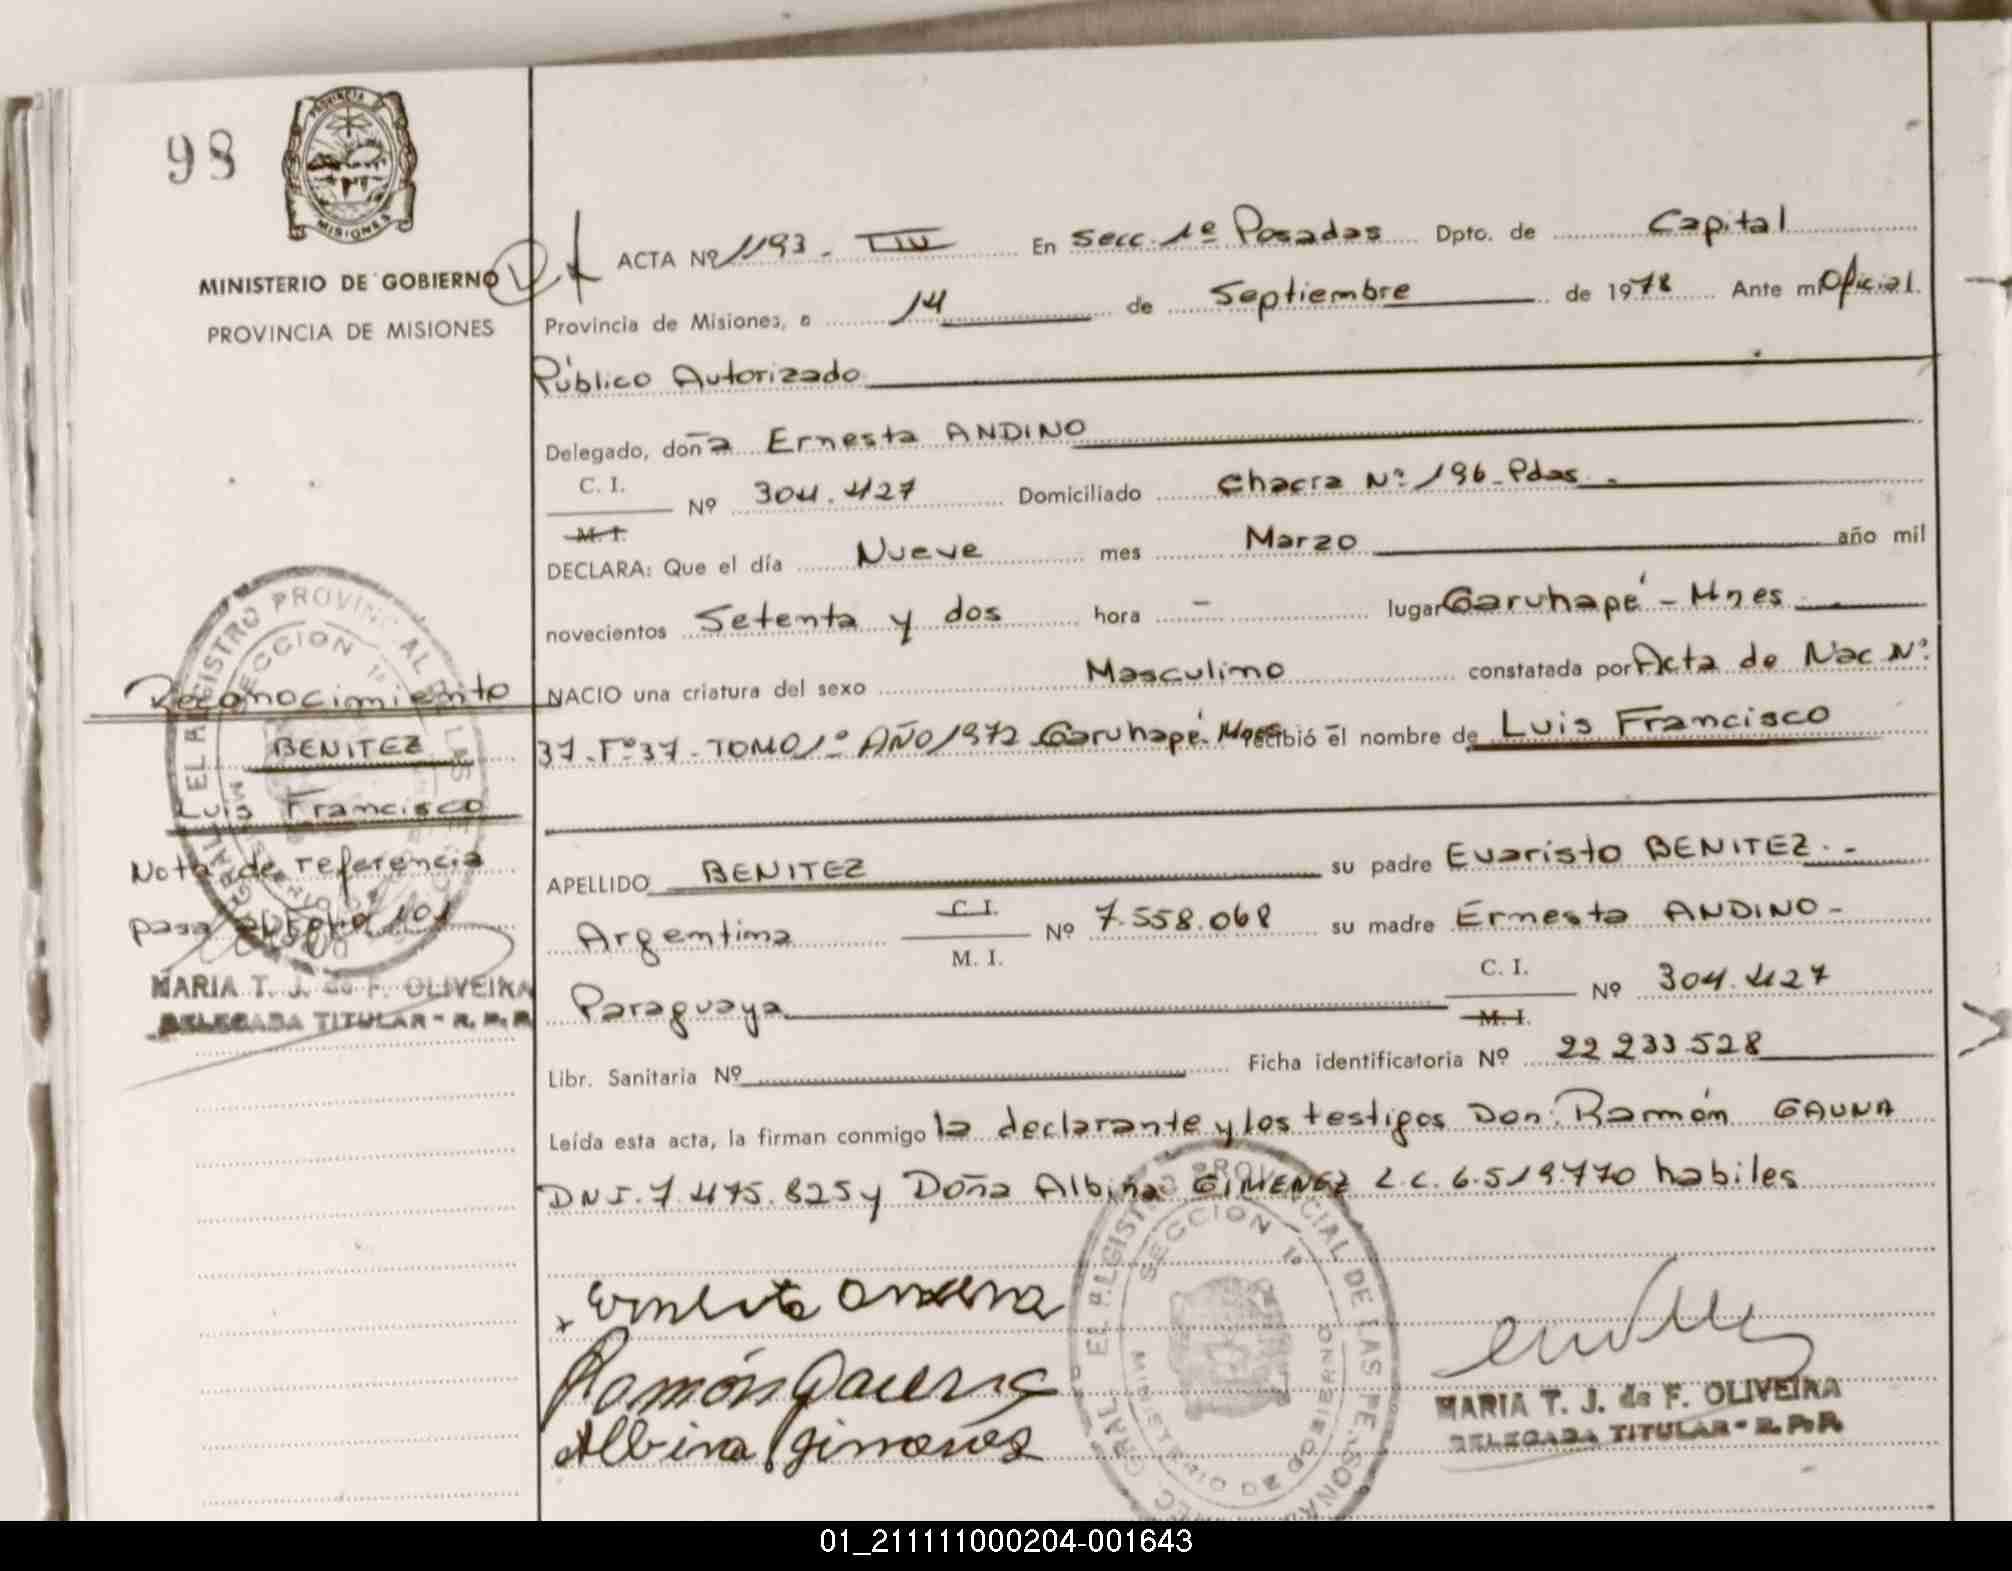 98
PROVINCIA
MISIONES
MINISTERIO DE GOBIERNO
PROVINCIA DE MISIONES
ACTA Nº 1193 - III En Secc. 1º Posadas Dpto. de Capital
Provincia de Misiones, a 14 de Septiembre de 1978 Ante mí Oficial
Público Autorizado
Delegado, doña Ernesta ANDINO
C. I.
M. I.
Nº 304.427 Domiciliado Chacra Nº 196 - Pdas.
DECLARA: Que el día Nueve mes Marzo año mil
novecientos Setenta y dos hora - lugar Garuhapé - Mnes
NACIO una criatura del sexo Masculino constatada por Acta de Nac Nº
37 - Fº 37 - TOMO 1º AÑO 1972 Garuhapé - Mnes recibió el nombre de Luis Francisco
APELLIDO BENITEZ su padre Evaristo BENITEZ. -
Argentina C. I. M. I. Nº 7.558.068 su madre Ernesta ANDINO -
Paraguaya C. I. M. I. Nº 304.427
Libr. Sanitaria Nº Ficha identificatoria Nº 22 233 528
Leída esta acta, la firman conmigo la declarante y los testigos Don: Ramón GAUNA
DNI. 7.475.825 y Doña Albina GIMENEZ L.C. 6.519.770 habiles
Reconocimiento
BENITEZ
Luis Francisco
Nota de referencia
pasa al folio 101
MARIA T. J. de F. OLIVEIRA
DELEGADA TITULAR - R. P. P.
REGISTRO PROVINCIAL DE LAS
SECCION 1ª
Ramón Gauna
Albina Gimenez
REGISTRO PROVINCIAL DE LAS PERSONAS
SECCION 1ª
MINISTERIO DE GOBIERNO
MARIA T. J. de F. OLIVEIRA
DELEGADA TITULAR - R. P. P.
01_211111000204-001643